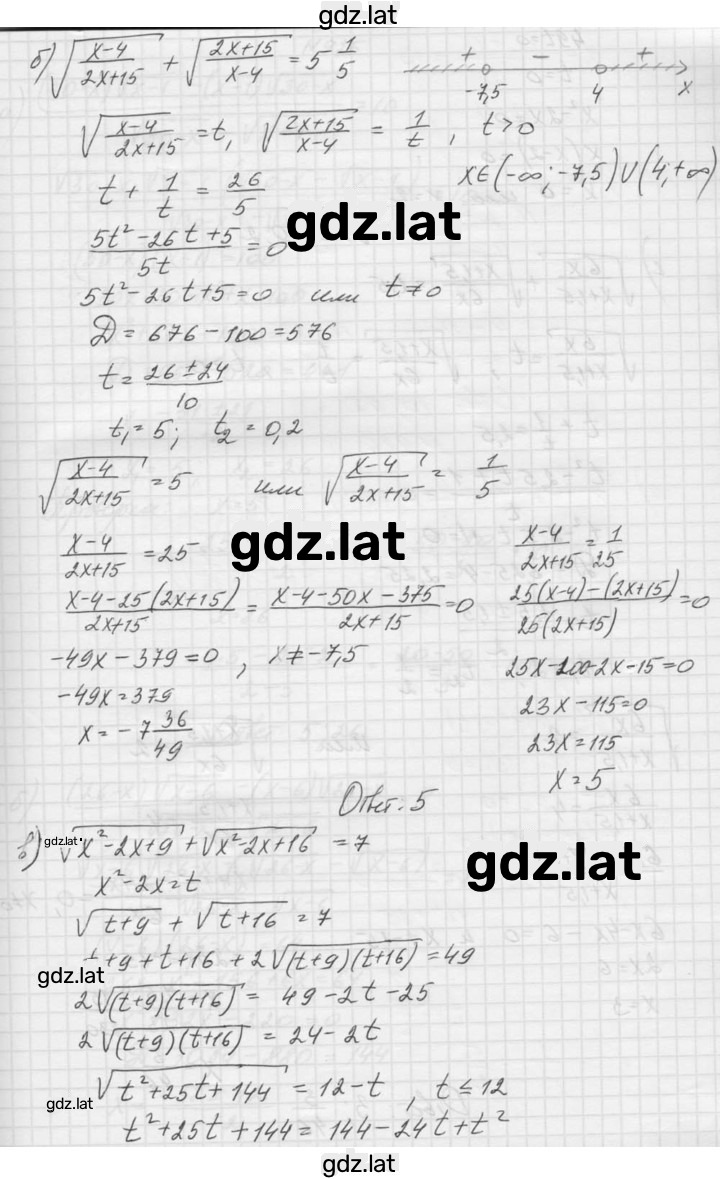 gdz.lat
б) √((x-4)/(2x+15)) + √((2x+15)/(x-4)) = 5 1/5
+ − +
-7,5 4 x
√((x-4)/(2x+15)) = t, √((2x+15)/(x-4)) = 1/t, t>0
t + 1/t = 26/5
x∈(-∞; -7,5)∪(4; +∞)
gdz.lat
(5t²-26t+5)/5t = 0
5t²-26t+5=0 или t≠0
Д = 676-100=576
t = (26±24)/10
t₁=5; t₂=0,2
√((x-4)/(2x+15)) = 5 или √((x-4)/(2x+15)) = 1/5
(x-4)/(2x+15) = 25
gdz.lat
(x-4)/(2x+15) = 1/25
(x-4-25(2x+15))/(2x+15) = (x-4-50x-375)/(2x+15) = 0
(25(x-4)-(2x+15))/(25(2x+15)) = 0
-49x-379=0, x≠-7,5
25x-100-2x-15=0
-49x=379
23x-115=0
x=-7 36/49
23x=115
x=5
Ответ: 5
gdz.lat
в) √(x²-2x+9) + √(x²-2x+16) = 7
gdz.lat
x²-2x=t
√(t+9) + √(t+16) = 7
t+9+t+16+2√((t+9)(t+16)) = 49
gdz.lat
2√((t+9)(t+16)) = 49-2t-25
2√((t+9)(t+16)) = 24-2t
√(t²+25t+144) = 12-t, t≤12
gdz.lat
t²+25t+144=144-24t+t²
gdz.lat